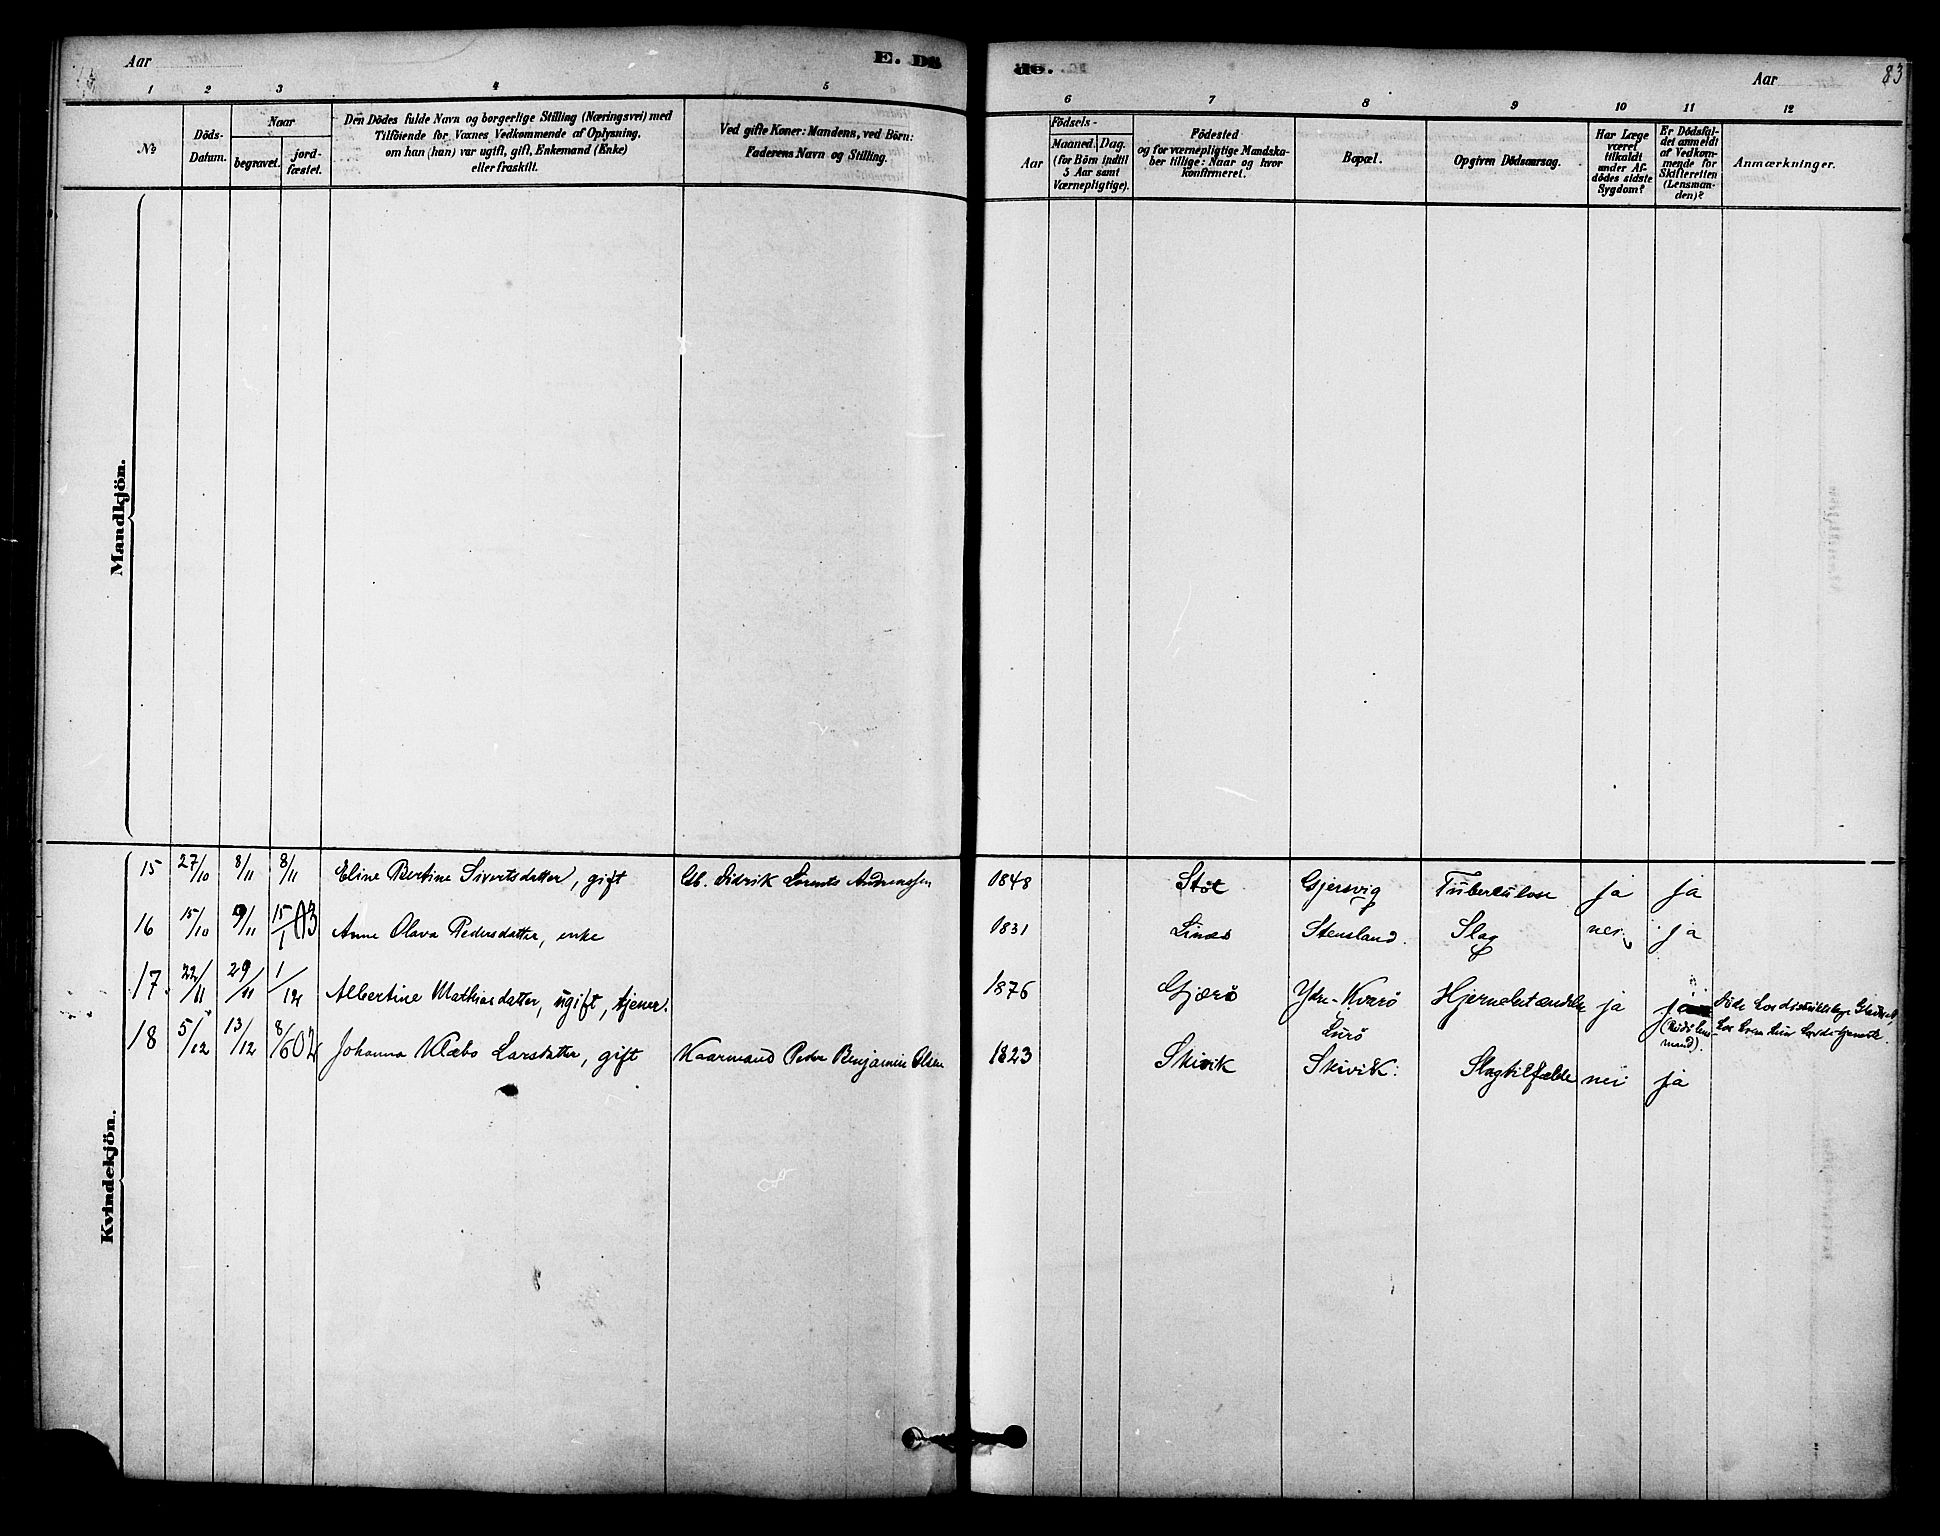 Aar E. Dö de. Aar 83
1 2 3 4 5 6 7 8 9 10 11 12
No
Döds-
Datum.
Naar
begravet.
jord-
fæstet.
Den Dödes fulde Navn og borgerlige Stilling (Næringsvei) med
Tilföiende for Voxnes Vedkommende af Oplysning,
om han (hun) var ugift, gift, Enkemand (Enke)
eller fraskilt.
Ved gifte Koner: Mandens, ved Börn:
Faderens Navn og Stilling.
Aar
Födsels-
Maaned. Dag.
(for Börn indtil
5 Aar samt
Værnepligtige).
Födested
og for værnepligtige Mandska-
ber tillige: Naar og hvor
konfirmeret.
Bopæl.
Opgiven Dödsaarsag.
Har Læge
været
tilkaldt
under Af-
dödes sidste
Sygdom?
Er Dödsfal-
det anmeldt
af Vedkom-
mende for
Skifteretten
(Lensman-
den)?
Anmærkninger.
Mandkjön.
Kvindekjön.
15 27/10 8/11 8/11 Eline Bertine Sivertsdatter, gift Gb. Didrik Lorents Andreassen 1848 Stot Gjersvig Tuberculose ja ja
16 15/10 9/11 15/1 03 Anne Olava Pedersdatter, enke 1831 Linæs Stensland. Slag nei ja
17. 22/11 29/11 1/12 Albertine Mathiasdatter, ugift, tjener. 1876 Gjærö Ydre-Kvarö Lurö ja ja (Rödö lensmand).
18 5/12 13/12 8/6 02 Johanna Klæbo Larsdatter, gift Kaarmand Peder Benjamin Olsen 1823 Skivik Skivik. Slagtilfælde nei ja